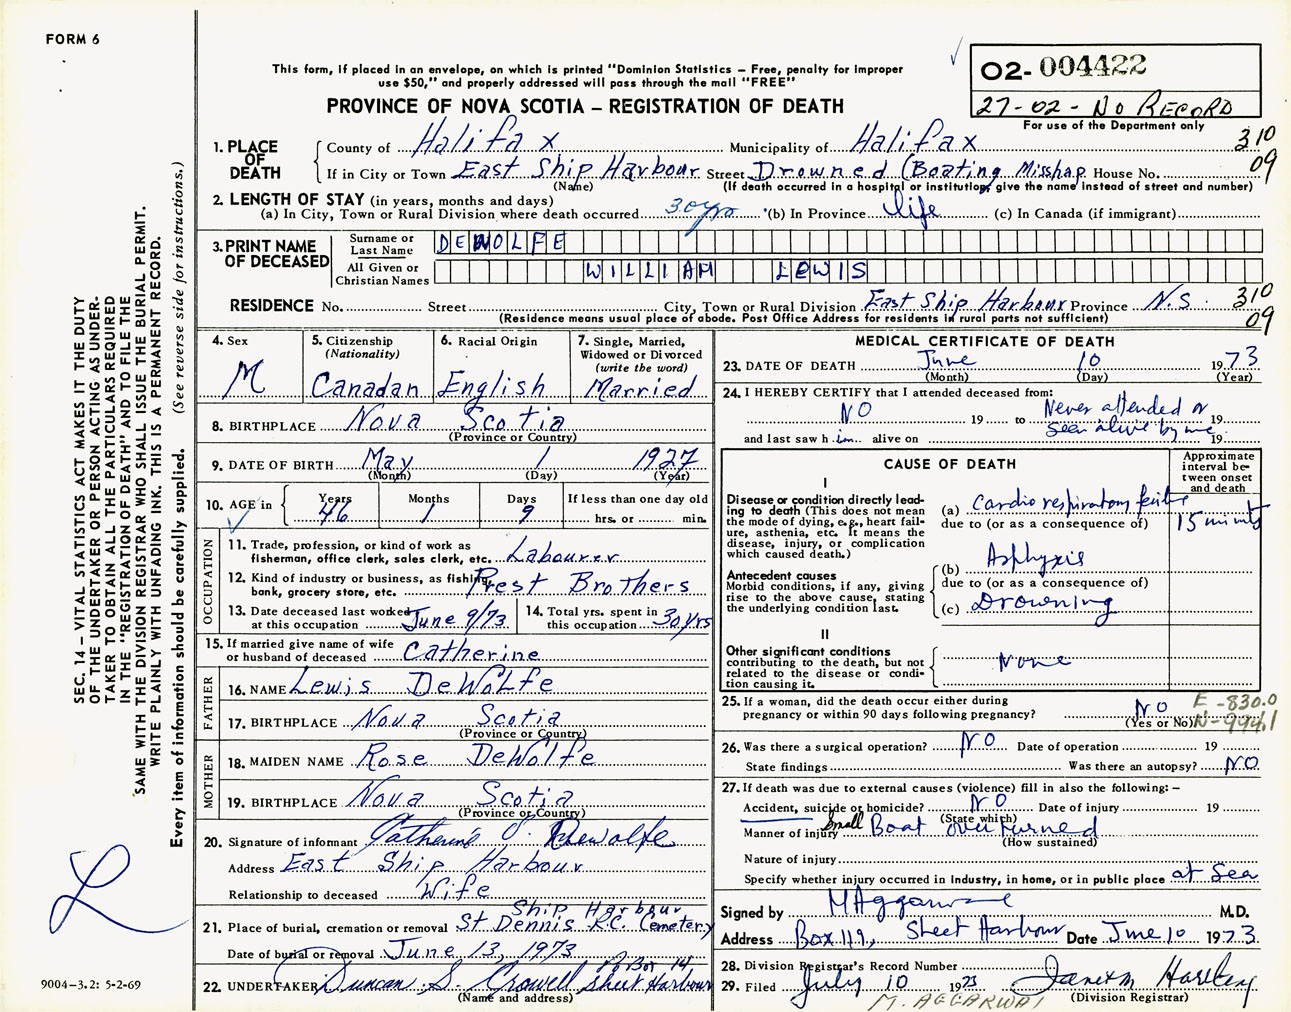 FORM 6
This form, if placed in an envelope, on which is printed "Dominion Statistics – Free, penalty for improper
use $50," and properly addressed will pass through the mail "FREE"
PROVINCE OF NOVA SCOTIA – REGISTRATION OF DEATH
02-004422
27-02-NO RECORD
For use of the Department only
310
09
1. PLACE OF DEATH
County of Halifax Municipality of Halifax
If in City or Town East Ship Harbour Street Drowned (Boating Misshap House No.
(Name) (If death occurred in a hospital or institution, give the name instead of street and number)
2. LENGTH OF STAY (in years, months and days)
(a) In City, Town or Rural Division where death occurred 30 yrs (b) In Province life (c) In Canada (if immigrant)
3. PRINT NAME OF DECEASED
Surname or Last Name DEWOLFE
All Given or Christian Names WILLIAM LEWIS
RESIDENCE No. Street City, Town or Rural Division East Ship Harbour Province N.S. 310
(Residence means usual place of abode. Post Office Address for residents in rural parts not sufficient) 09
4. Sex
M
5. Citizenship
(Nationality)
Canadan
6. Racial Origin
English
7. Single, Married,
Widowed or Divorced
(write the word)
Married
8. BIRTHPLACE Nova Scotia
(Province or Country)
9. DATE OF BIRTH May 1 1927
(Month) (Day) (Year)
10. AGE in
Years Months Days If less than one day old
46 1 9 hrs. or min.
OCCUPATION
11. Trade, profession, or kind of work as
fisherman, office clerk, sales clerk, etc. Labourer
12. Kind of industry or business, as fishing,
bank, grocery store, etc. Prest Brothers
13. Date deceased last worked
at this occupation June 9/73
14. Total yrs. spent in
this occupation 30 yrs
15. If married give name of wife
or husband of deceased Catherine
FATHER
16. NAME Lewis DeWolfe
17. BIRTHPLACE Nova Scotia
(Province or Country)
MOTHER
18. MAIDEN NAME Rose DeWolfe
19. BIRTHPLACE Nova Scotia
(Province or Country)
20. Signature of informant Catherine Dewolfe
Address East Ship Harbour
Relationship to deceased Wife
Ship Harbour
21. Place of burial, cremation or removal St Dennis R.C. Cemetery
Date of burial or removal June 13, 1973
PO Box 14
22. UNDERTAKER Duncan S. Crowell Sheet Harbour
(Name and address)
MEDICAL CERTIFICATE OF DEATH
23. DATE OF DEATH June 10 1973
(Month) (Day) (Year)
24. I HEREBY CERTIFY that I attended deceased from:
NO 19 to Never attended or 19
and last saw h im alive on seen alive by me 19
CAUSE OF DEATH
Approximate interval between onset and death
I
Disease or condition directly lead-
ing to death (This does not mean
the mode of dying, e.g., heart fail-
ure, asthenia, etc. It means the
disease, injury, or complication
which caused death.)
(a) Cardio respiratory failure
due to (or as a consequence of)
15 minuts
Antecedent causes
Morbid conditions, if any, giving
rise to the above cause, stating
the underlying condition last.
(b) Asphyxis
due to (or as a consequence of)
(c) Drowning
II
Other significant conditions
contributing to the death, but not
related to the disease or condi-
tion causing it.
None
25. If a woman, did the death occur either during
pregnancy or within 90 days following pregnancy? NO
(Yes or No)
E-830.0
N-994.1
26. Was there a surgical operation? NO Date of operation 19
State findings Was there an autopsy? NO
27. If death was due to external causes (violence) fill in also the following:–
Accident, suicide or homicide? NO Date of injury 19
(State which)
Manner of injury Small Boat overturned
(How sustained)
Nature of injury
Specify whether injury occurred in industry, in home, or in public place at Sea
Signed by M Aggarwal M.D.
Address Box 119, Sheet Harbour Date June 10 1973
28. Division Registrar's Record Number
29. Filed July 10 1973
(Division Registrar)
M. AGGARWAL
SEC. 14 – VITAL STATISTICS ACT MAKES IT THE DUTY
OF THE UNDERTAKER OR PERSON ACTING AS UNDER-
TAKER TO OBTAIN ALL THE PARTICULARS REQUIRED
IN THE "REGISTRATION OF DEATH" AND TO FILE THE
SAME WITH THE DIVISION REGISTRAR WHO SHALL ISSUE THE BURIAL PERMIT.
WRITE PLAINLY WITH UNFADING INK. THIS IS A PERMANENT RECORD.
Every item of information should be carefully supplied. (See reverse side for instructions.)
L
9004-3.2: 5-2-69